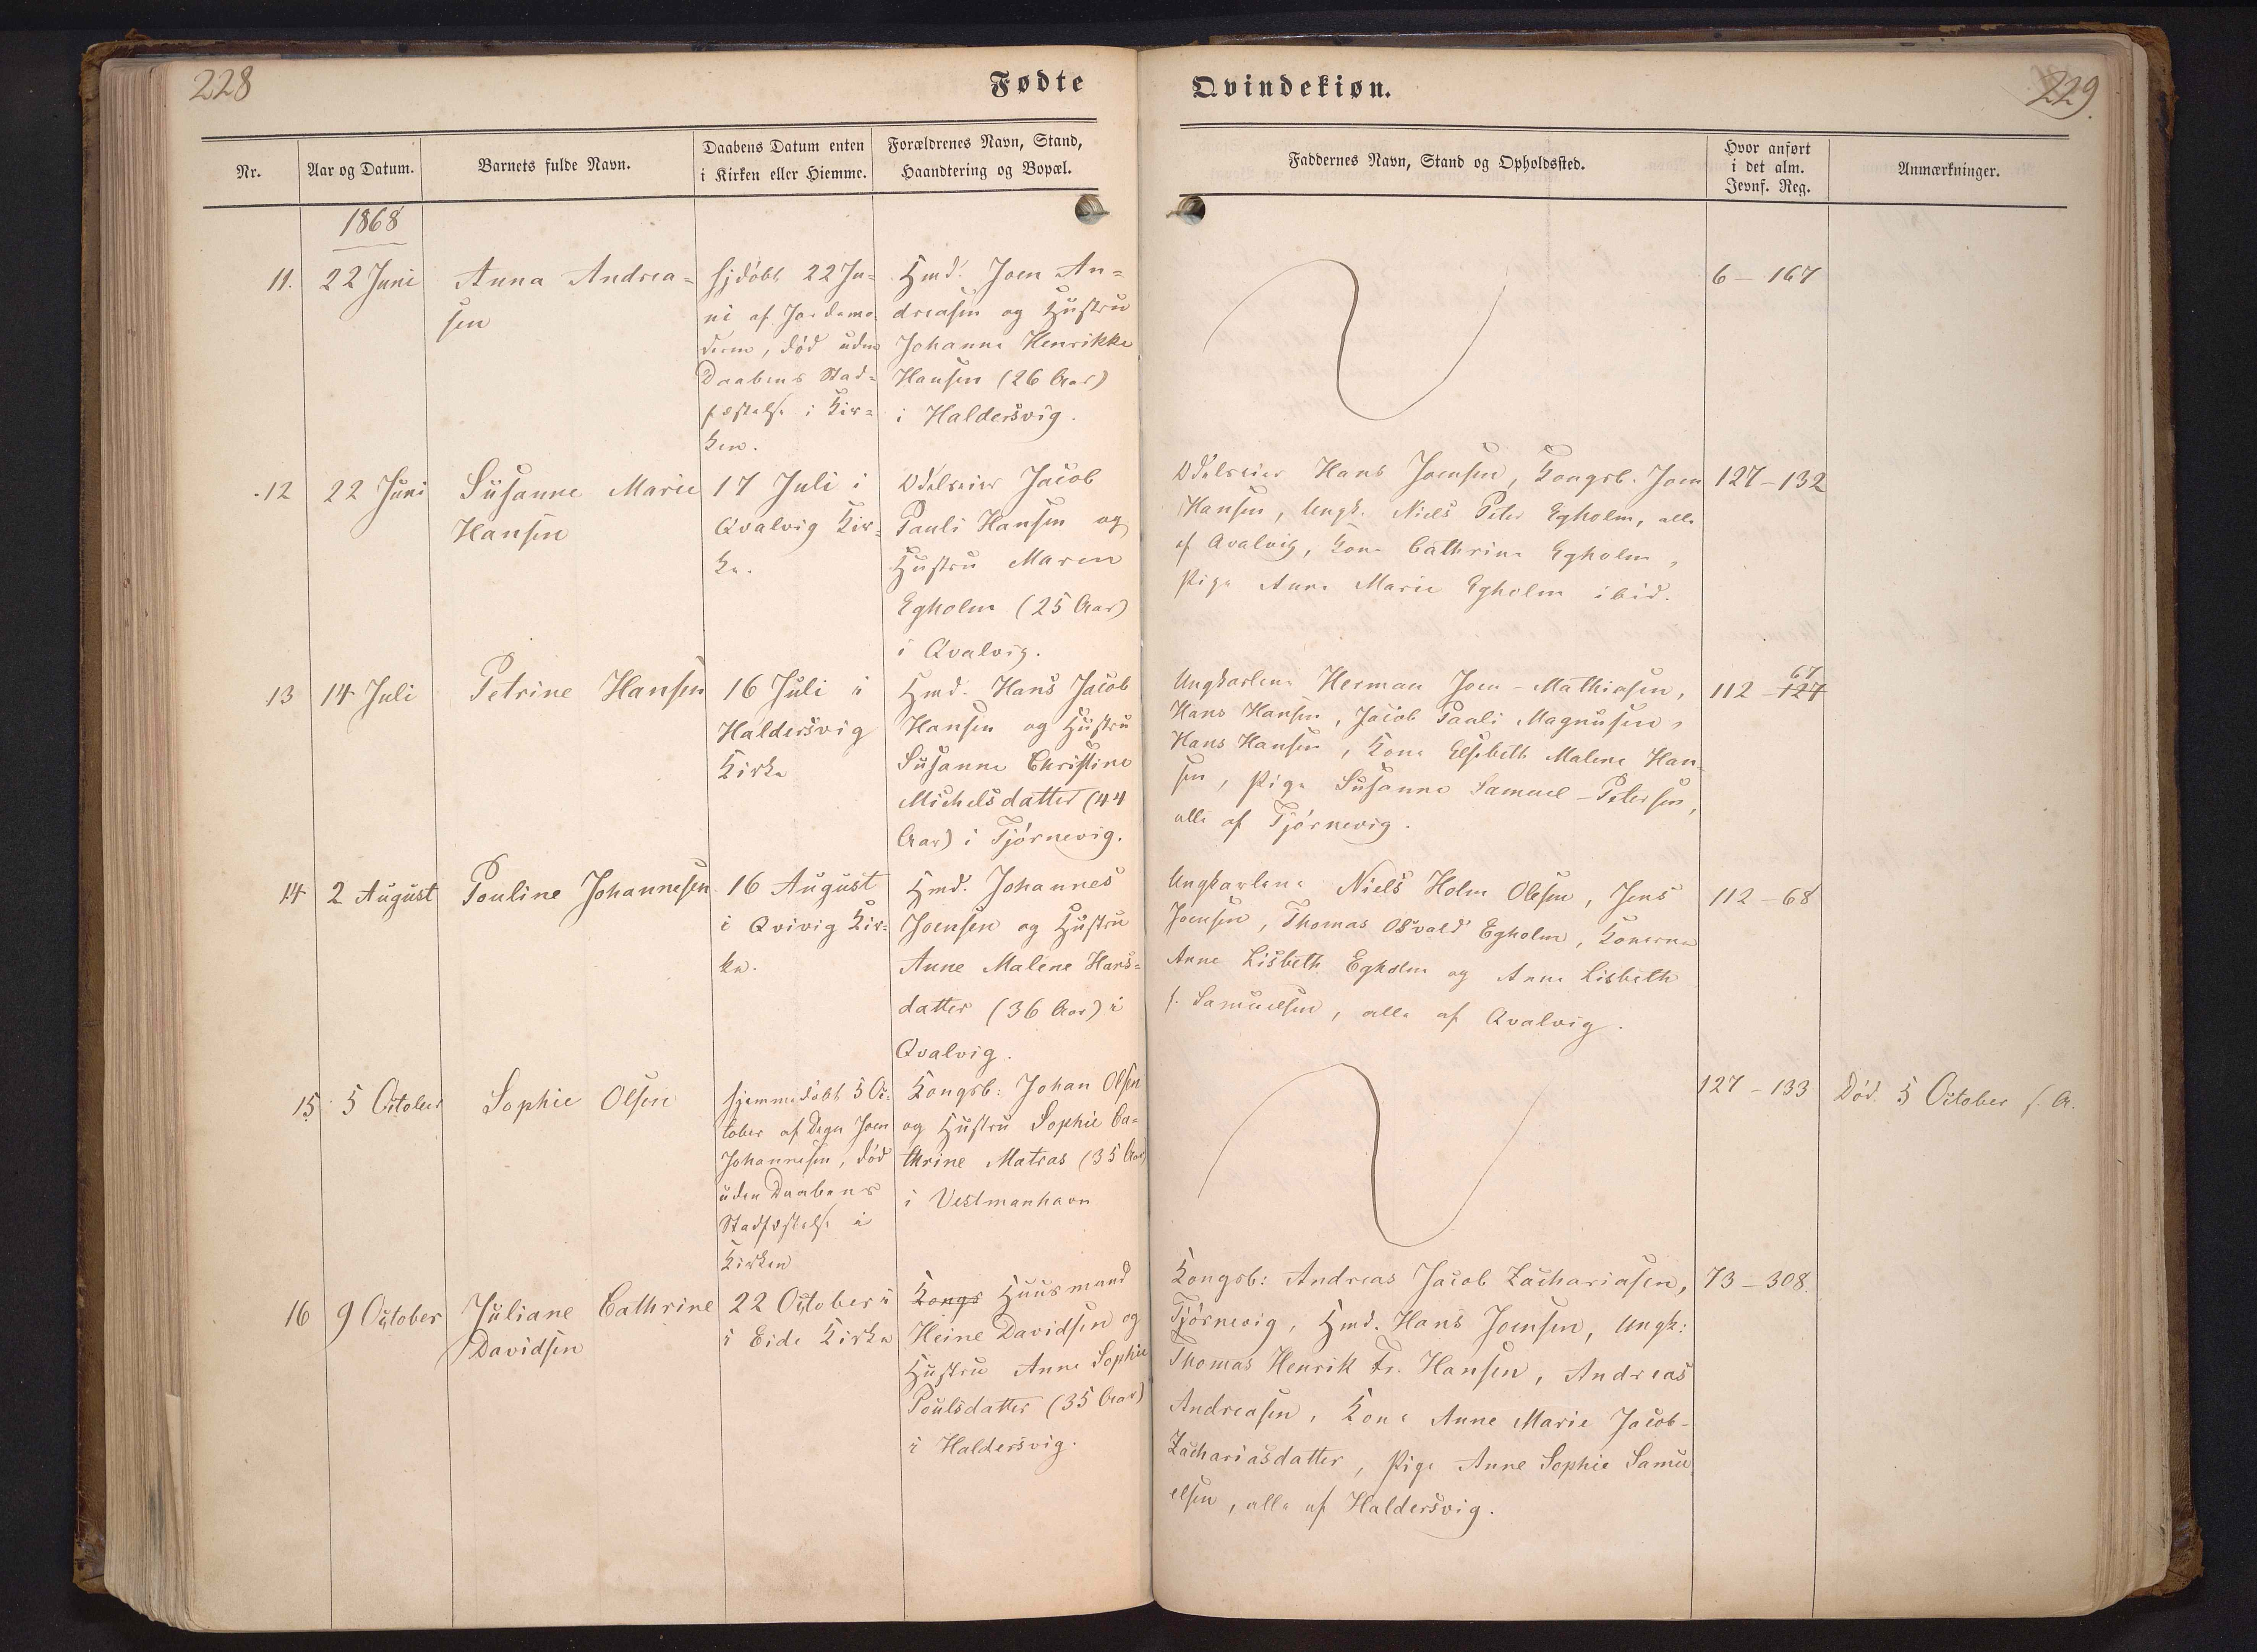 228
Fødte
Nr.
Aar og Datum.
Barnets fulde Navn.
Daabens Datum enten
i Kirken eller Hiemme.
Forældrenes Navn, Stand,
Haandtering og Bopæl.
1868
11.
22 Juni
Anna Andrea-
sen
hjdøbt 22 Ju-
ni af Jordemo-
deren, død uden
Daabens Stad-
fæstelse i Kir-
ken.
Hmd. Joen An-
dreasen og Hustru
Johanne Henrikke
Hansen (26 Aar)
i Haldersvig.
12
22 Juni
Susanne Marie
Hansen
17 Juli i
Qvalvig Kir-
ke.
Odelseier Jacob
Pauli Hansen og
Hustru Maren
Egholm (25 Aar)
i Qvalvig.
13
14 Juli
Petrine Hansen
16 Juli i
Haldersvig
Kirke
Hmd. Hans Jacob
Hansen og Hustru
Susanne Christine
Michelsdatter (44
Aar) i Tjørnevig.
14
2 August
Pouline Johannesen
16 August
i Qvivig Kir-
ke.
Hmd. Johannes
Joensen og Hustru
Anne Malene Hans-
datter (36 Aar) i
Qvalvig.
15
5 October
Sophie Olsen
hjemmedøbt 5 Oc-
tober af Degn Joen
Johannesen, død
uden Daabens
Stadfæstelse i
Kirken
Kongsb: Johan Olsen
og Hustru Sophie Ca-
thrine Matras (35 Aar)
i Vestmanhavn
16
9 October
Juliane Cathrine
Davidsen
22 October i
i Eide Kirke
Kongs Huusmand
Heine Davidsen og
Hustru Anne Sophie
Poulsdatter (35 Aar)
i Haldersvig.
Qvindekiøn.
229.
Faddernes Navn, Stand og Opholdssted.
Hvor anført
i det alm.
Jevnf. Reg.
Anmærkninger.
6 - 167
Odelseier Hans Joensen, Kongsb. Joen
Hansen, Ungk. Niels Peter Egholm, alle
af Qvalvig, Kone Cathrine Egholm,
Pige Anne Marie Egholm ibid.
127 - 132
Ungkarlene Herman Joen-Mathiasen,
Hans Hansen, Jacob Paali Magnusen,
Hans Hansen, Kone Elsebeth Malene Han-
sen, Pige Susanne Samuel-Petersen,
alle af Tjørnevig.
67
112 - 127
Ungkarlene Niels Holm Olesen, Jens
Joensen, Thomas Osvald Egholm, Konerne
Anne Lisbeth Egholm og Anne Lisbeth
f. Samuelsen, alle af Qvalvig.
112 - 68
127 - 133
Død 5 October s. A.
Kongsb: Andreas Jacob Zachariasen,
Tjørnevig, Hmd. Hans Joensen, Ungk:
Thomas Henrik Fr. Hansen, Andreas
Andreasen, Kone Anne Marie Jacob-
Zachariasdatter, Pige Anne Sophie Samu
elsen, alle af Haldersvig.
73 - 308.